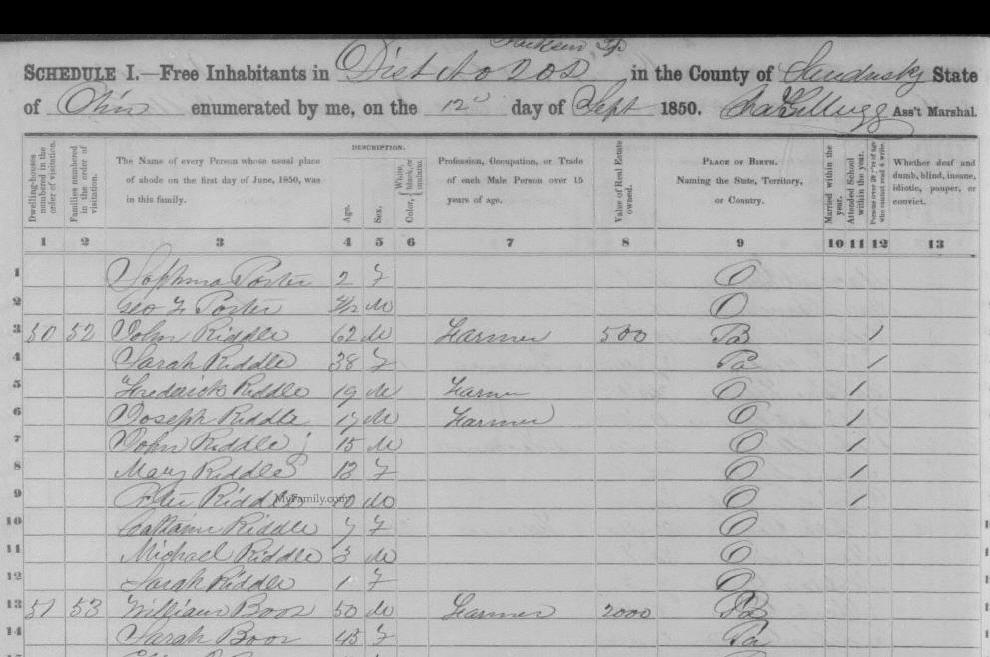 Jackson Tp
SCHEDULE I.—Free Inhabitants in Dist No 202 in the County of Sandusky State
of Ohio enumerated by me, on the 12 day of Sept 1850. Ass't Marshal.
DESCRIPTION.
Dwelling-houses numbered in the order of visitation.
Families numbered in the order of visitation.
The Name of every Person whose usual place
of abode on the first day of June, 1850, was
in this family.
Age.
Sex.
Color, { White, black, or mulatto.
Profession, Occupation, or Trade
of each Male Person over 15
years of age.
Value of Real Estate owned.
PLACE OF BIRTH.
Naming the State, Territory,
or Country.
Married within the year.
Attended School within the year.
Persons over 20 y'rs of age who cannot read & write.
Whether deaf and
dumb, blind, insane,
idiotic, pauper, or
convict.
1 2 3 4 5 6 7 8 9 10 11 12 13
1 Porter 2 F O
2 Geo F Porter M O
3 50 52 John Riddle 62 M Farmer 500 Pa 1
4 Sarah Riddle 38 F Pa 1
5 Frederick Riddle 19 M Farmer O 1
6 Joseph Riddle 17 M Farmer O 1
7 John Riddle j 15 M O 1
8 Mary Riddle 13 F O 1
9 Peter Riddle 10 M O 1
MyFamily.com
10 Riddle 7 F O
11 Michael Riddle 3 M O
12 Sarah Riddle 1 F O
13 51 53 William Boor 50 M Farmer 2000 Pa
14 Sarah Boor 43 F Pa